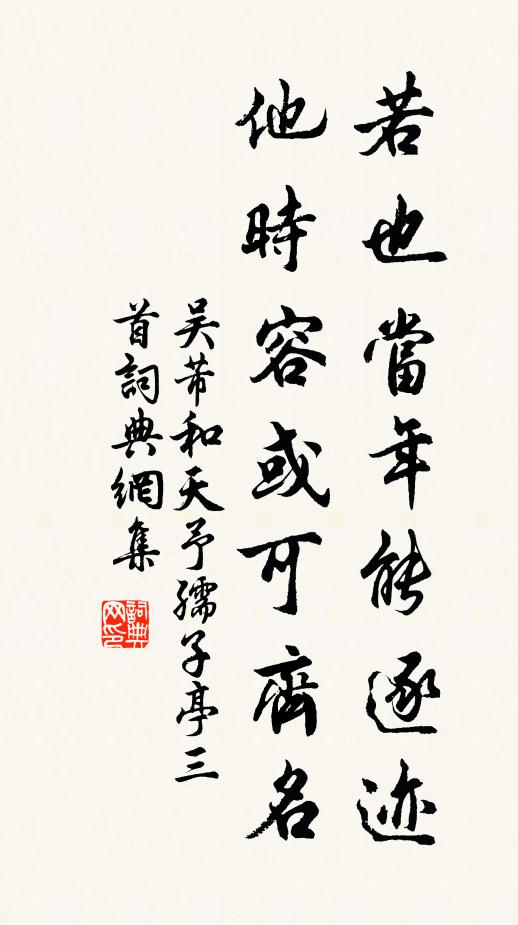 若也當年能逐迹
他時容或可齊名
吴芾和天予孺子亭三
首詞典網集
詞典網印